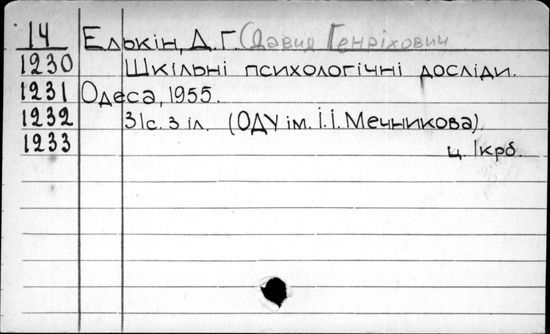 14 Елькін, Д. Г. (Давид Генріхович
1230 Шкільні психологічні досліди.
1231 Одеса, 1955.
1232 31с. з іл. (ОДУ ім. І.І. Мечникова)
1233 ц. 1крб.